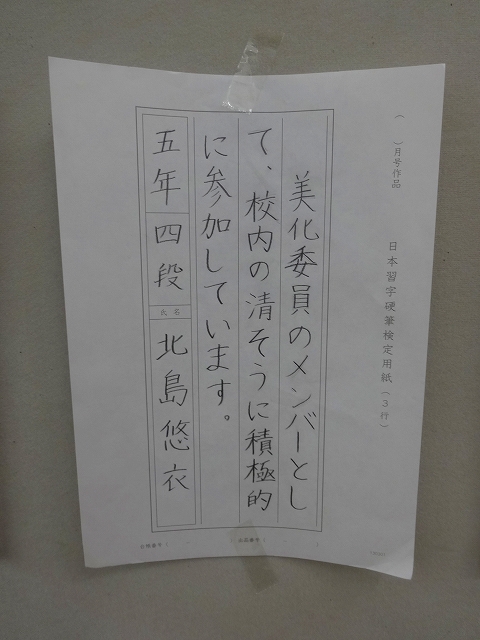 （　）月号作品
日本習字硬筆検定用紙（３行）
美化委員のメンバーとし
て、校内の清そうに積極的
に参加しています。
五年 四段 氏名 北島悠衣